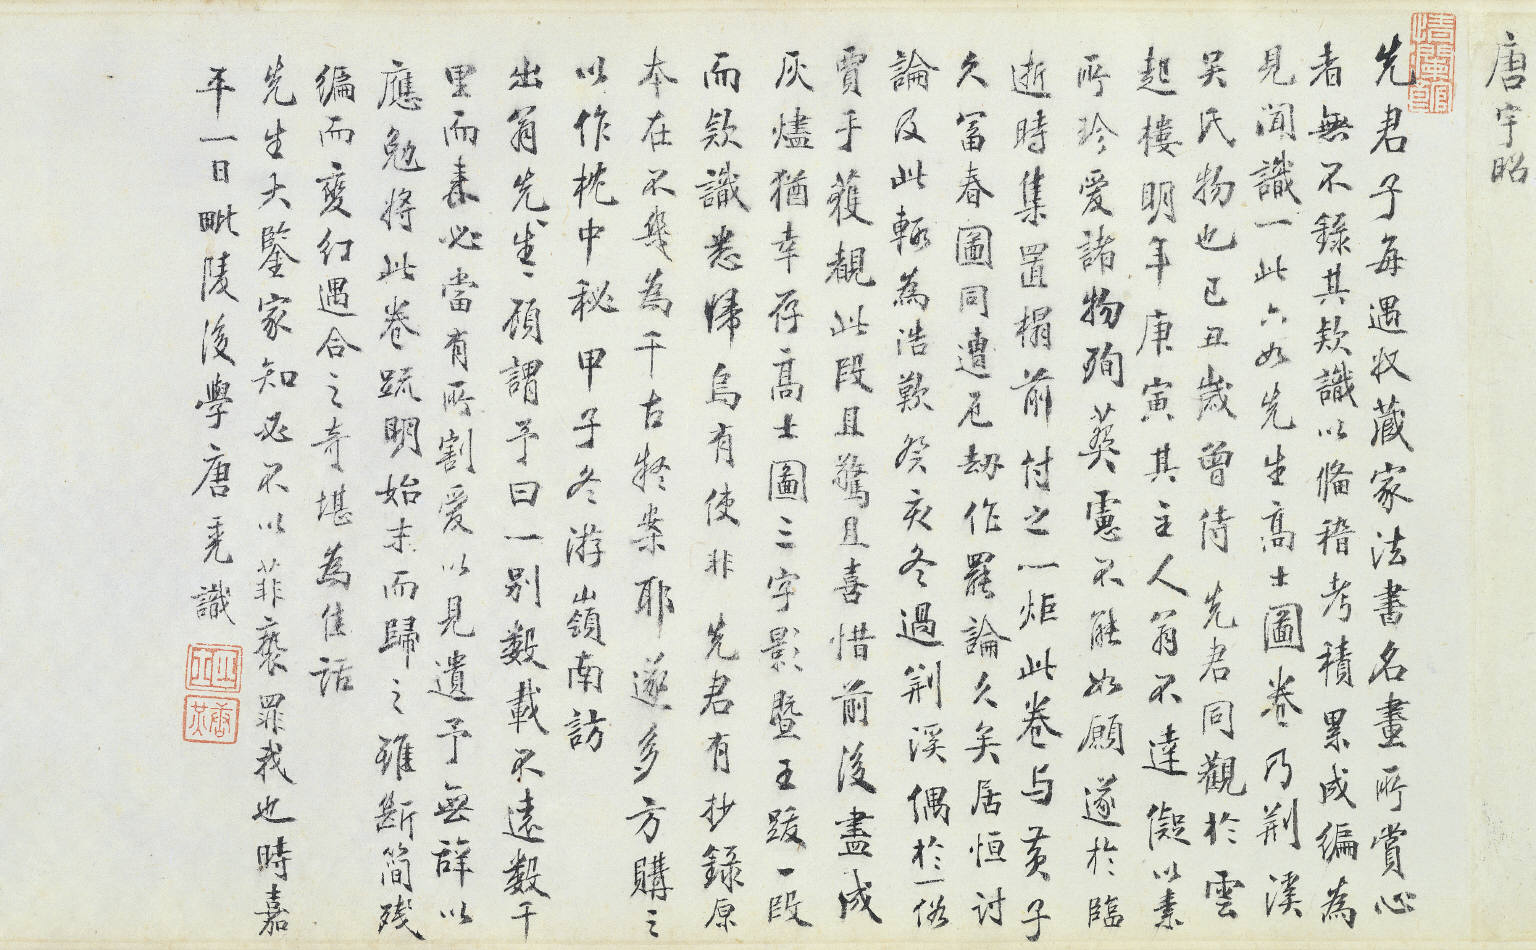 唐宇昭
先君子每遇收藏家法書名畫所賞心
者無不錄其款識以備稽考積累成編為
見聞識一此六如先生高士圖卷乃荆溪
吳氏物也己丑歲曾侍 先君同觀於雲
起樓明年庚寅其主人翁不達儗以素
所珍愛諸物殉葬慮不能如願遂於臨
逝時集置榻前付之一炬此卷与黄子
久富春圖同遭厄劫作罷論久矣居恒討
論及此輒為浩歎癸亥冬過荆溪偶於一俗
賈手獲覩此段且驚且喜惜前後盡成
灰燼猶幸存高士圖三字影暨王跋一段
而款識悉歸烏有使非 先君有抄錄原
本在不幾為千古疑案耶遂多方購之
以作枕中秘甲子冬游嶺南訪
出翁先生先生頋謂予曰一别數載不遠數千
里而來必當有所割愛以見遺予無辞以
應勉將此卷疏明始末而歸之雖斷简殘
編而變幻遇合之奇堪為佳話
先生大鑒家知必不以菲褻罪我也時嘉
平一日毗陵後學唐 識